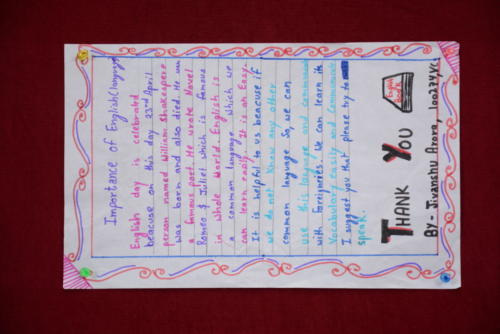 Importance of English (language)
English day is celebrated
beacuse on this day 23rd April
person named William Shakespere
was born and also died. He was
a famous poet. He wrote Novel
Romeo & Juliet which is famous
in whole World. English is
a common language which we
can learn easily. It is an Easy.
It is helpful to us beacuse if
we do not know any other
common language So, we can
use this language and communicate
with Foreigners. We can learn its
Vocabulary easily and communicate
I suggest you that please try to
speak.
THANK YOU
By - Jivanshu Arora,